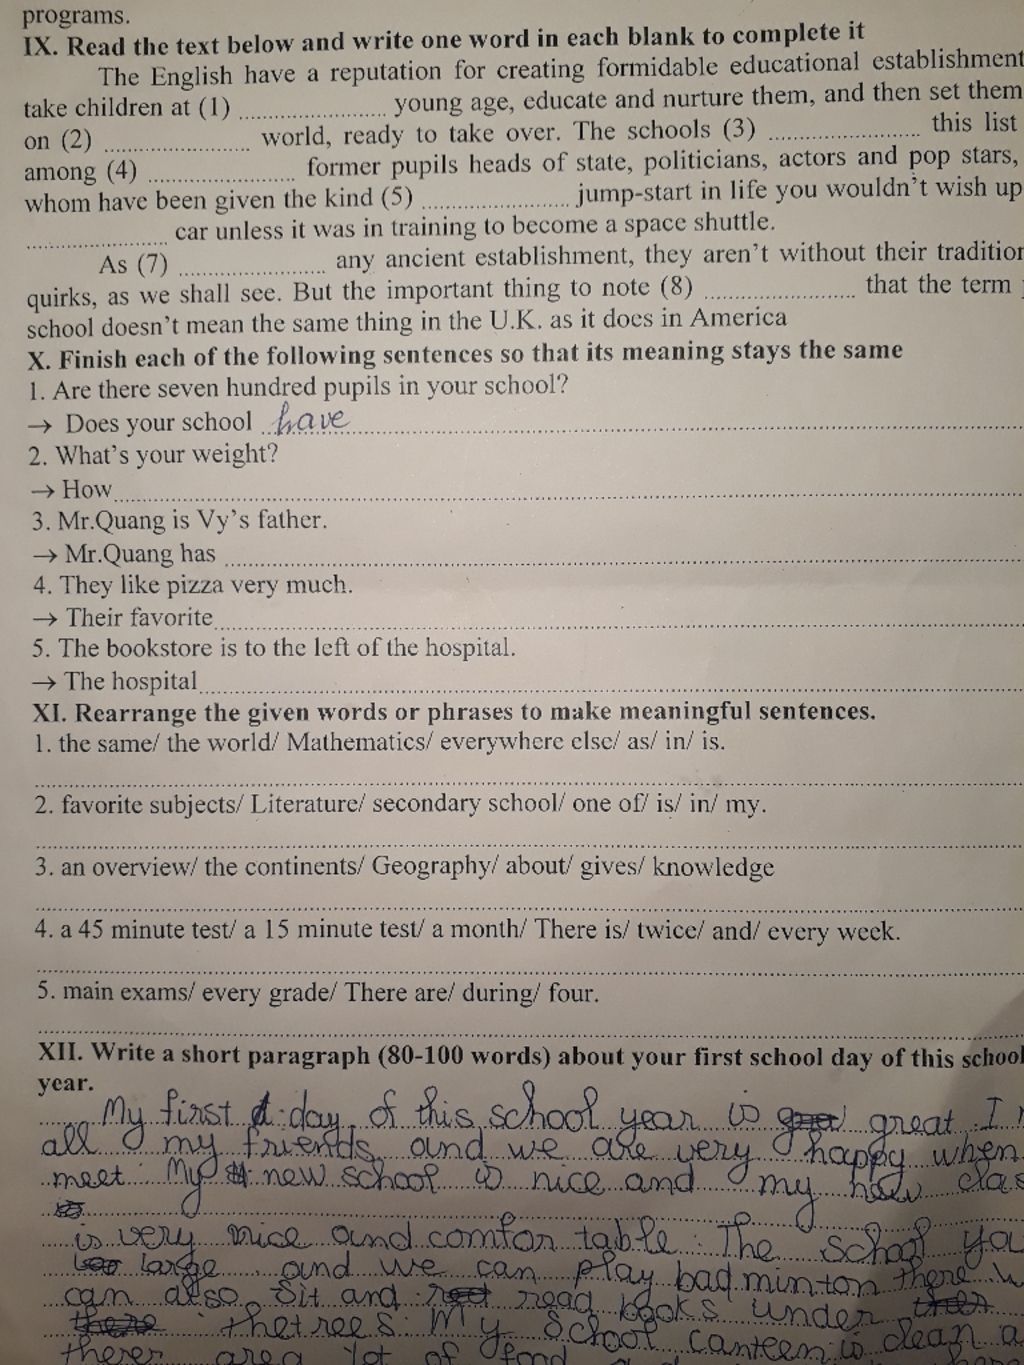 programs.
IX. Read the text below and write one word in each blank to complete it
The English have a reputation for creating formidable educational establishment
take children at (1) .......................... young age, educate and nurture them, and then set them
on (2) .......................... world, ready to take over. The schools (3) .......................... this list
among (4) .......................... former pupils heads of state, politicians, actors and pop stars,
whom have been given the kind (5) .......................... jump-start in life you wouldn't wish up
.......................... car unless it was in training to become a space shuttle.
As (7) .......................... any ancient establishment, they aren't without their tradition
quirks, as we shall see. But the important thing to note (8) .......................... that the term
school doesn't mean the same thing in the U.K. as it does in America
X. Finish each of the following sentences so that its meaning stays the same
1. Are there seven hundred pupils in your school?
→ Does your school have
2. What's your weight?
→ How
3. Mr.Quang is Vy's father.
→ Mr.Quang has
4. They like pizza very much.
→ Their favorite
5. The bookstore is to the left of the hospital.
→ The hospital
XI. Rearrange the given words or phrases to make meaningful sentences.
1. the same/ the world/ Mathematics/ everywhere else/ as/ in/ is.
2. favorite subjects/ Literature/ secondary school/ one of/ is/ in/ my.
3. an overview/ the continents/ Geography/ about/ gives/ knowledge
4. a 45 minute test/ a 15 minute test/ a month/ There is/ twice/ and/ every week.
5. main exams/ every grade/ There are/ during/ four.
XII. Write a short paragraph (80-100 words) about your first school day of this school
year.
My first day of this school year is great. I
all my friends and we are very happy when
meet. My new school is nice and my new clas
is very nice and comfortable. The school ya
large and we can play badminton there. w
can also sit and read books under
thetrees. My school canteen is clean a
there area lot of food